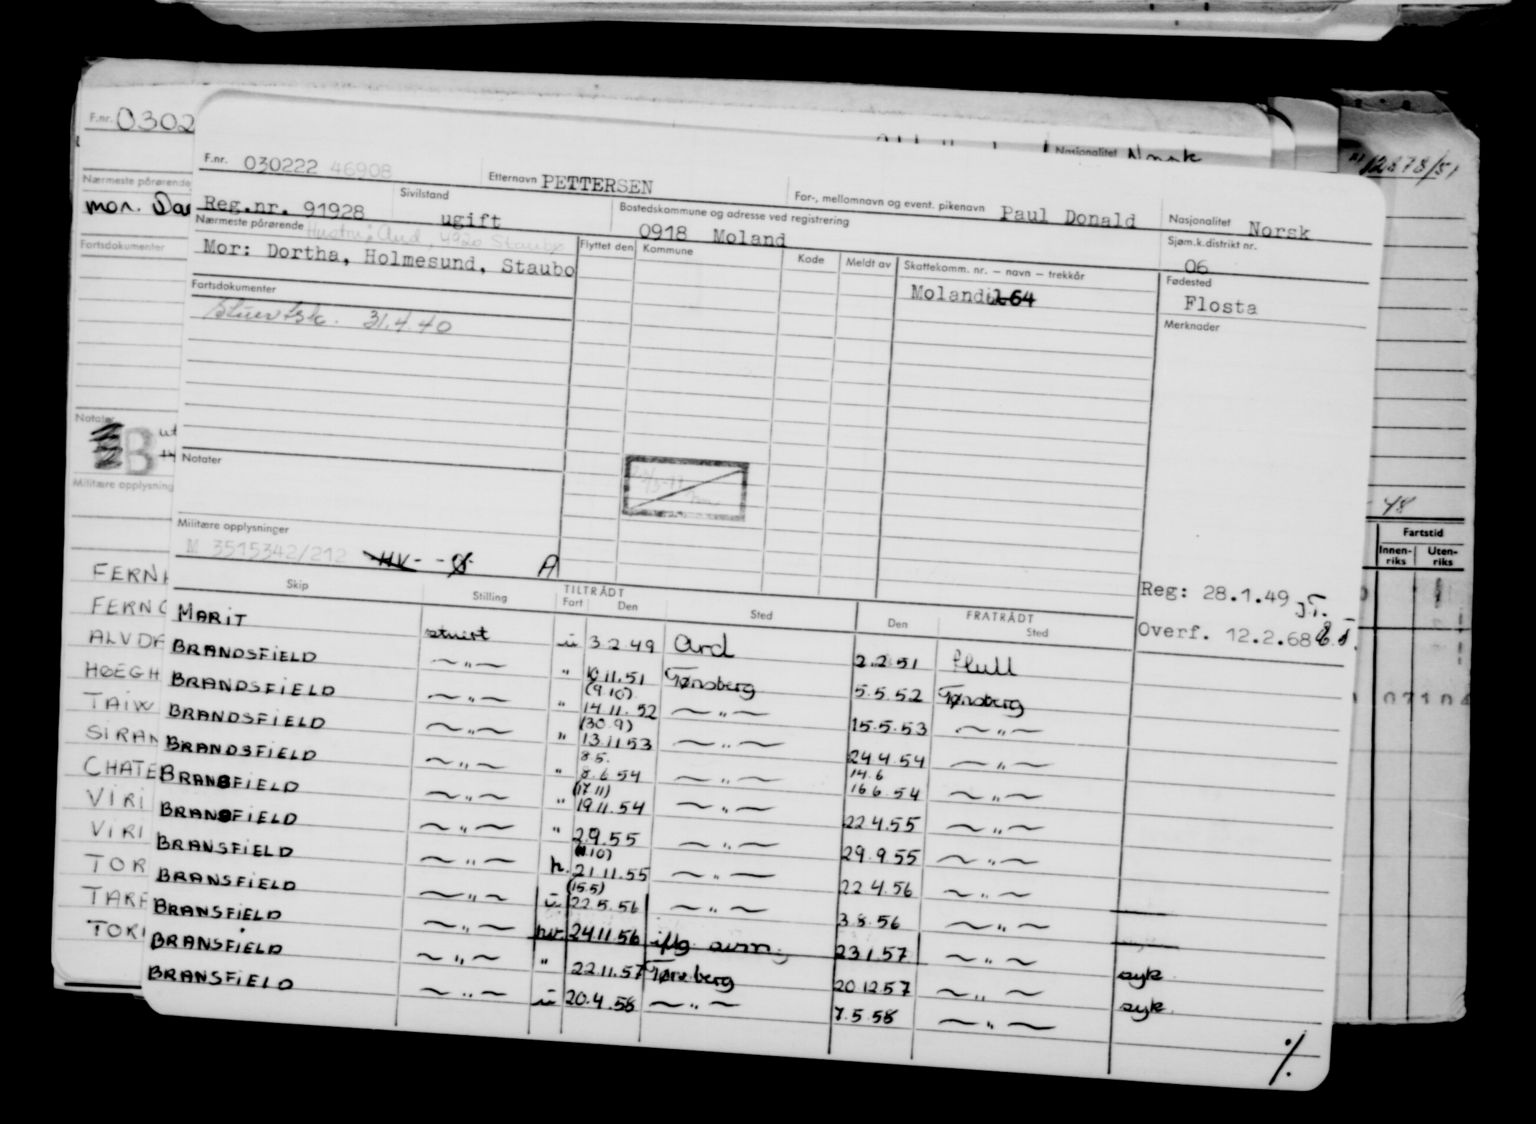 12878/51
F.nr. 0302
Nasjonalitet Norsk
F.nr. 030222 46908 Etternavn PETTERSEN For-, mellomnavn og event. pikenavn Paul Donald Nasjonalitet Norsk
Reg.nr. 91928 Sivilstand ugift Bostedskommune og adresse ved registrering 0918 Moland Sjøm.k.distrikt nr. 06
Nærmeste pårørende
mor.
Fartsdokumenter
Nærmeste pårørende Hustru: Aud, 4920 Staubo
Mor: Dortha, Holmesund, Staubo
Flyttet den Kommune Kode Meldt av Skattekomm. nr. – navn – trekkår
Moland 64
Fødested
Flosta
Fartsdokumenter
31.4.40
Merknader
Notater
B
Notater
Militære opplysning
Militære opplysninger
M 3515342/212 HV - - Ø A
Reg: 28.1.49
Overf. 12.2.68
48
Fartstid
Innen-riks Uten-riks
Skip Stilling TILTRÅDT Fart Den Sted FRATRÅDT Den Sted
MARIT stuert u 3.2.49 Ard 2.2.51 Hull
BRANDSFIELD ~ " ~ " 10.11.51 Tønsberg 5.5.52 Tønsberg
BRANDSFIELD ~ " ~ " (9.10) 14.11.52 ~ " ~ 15.5.53 ~ " ~
BRANDSFIELD ~ " ~ " (30.9) 13.11.53 ~ " ~ 24.4.54 ~ " ~
BRANDSFIELD ~ " ~ " 8.5. 8.6.54 ~ " ~ 14.6 16.6.54 ~ " ~
BRANSFIELD ~ " ~ " (17.11) 19.11.54 ~ " ~ 22.4.55 ~ " ~
BRANSFIELD ~ " ~ " 2.9.55 ~ " ~ 29.9.55 ~ " ~
BRANSFIELD ~ " ~ h. 21.11.55 ~ " ~ 22.4.56 ~ " ~
BRANSFIELD ~ " ~ u (15.5) 22.5.56 ~ " ~ 3.8.56 ~ " ~
BRANSFIELD ~ " ~ hv. 24.11.56 iflg. 23.1.57 ~ " ~ syk
BRANSFIELD ~ " ~ " 22.11.57 Tønsberg 20.12.57 ~ " ~ syk.
BRANSFIELD ~ " ~ u 20.4.58 ~ " ~ 7.5.58 ~ " ~
FERN
FERN
ALVDA
HØEGH
TAIW
SIRAN
CHATE
VIRI
VIRI
TOR
TARE
TORI
07104
%